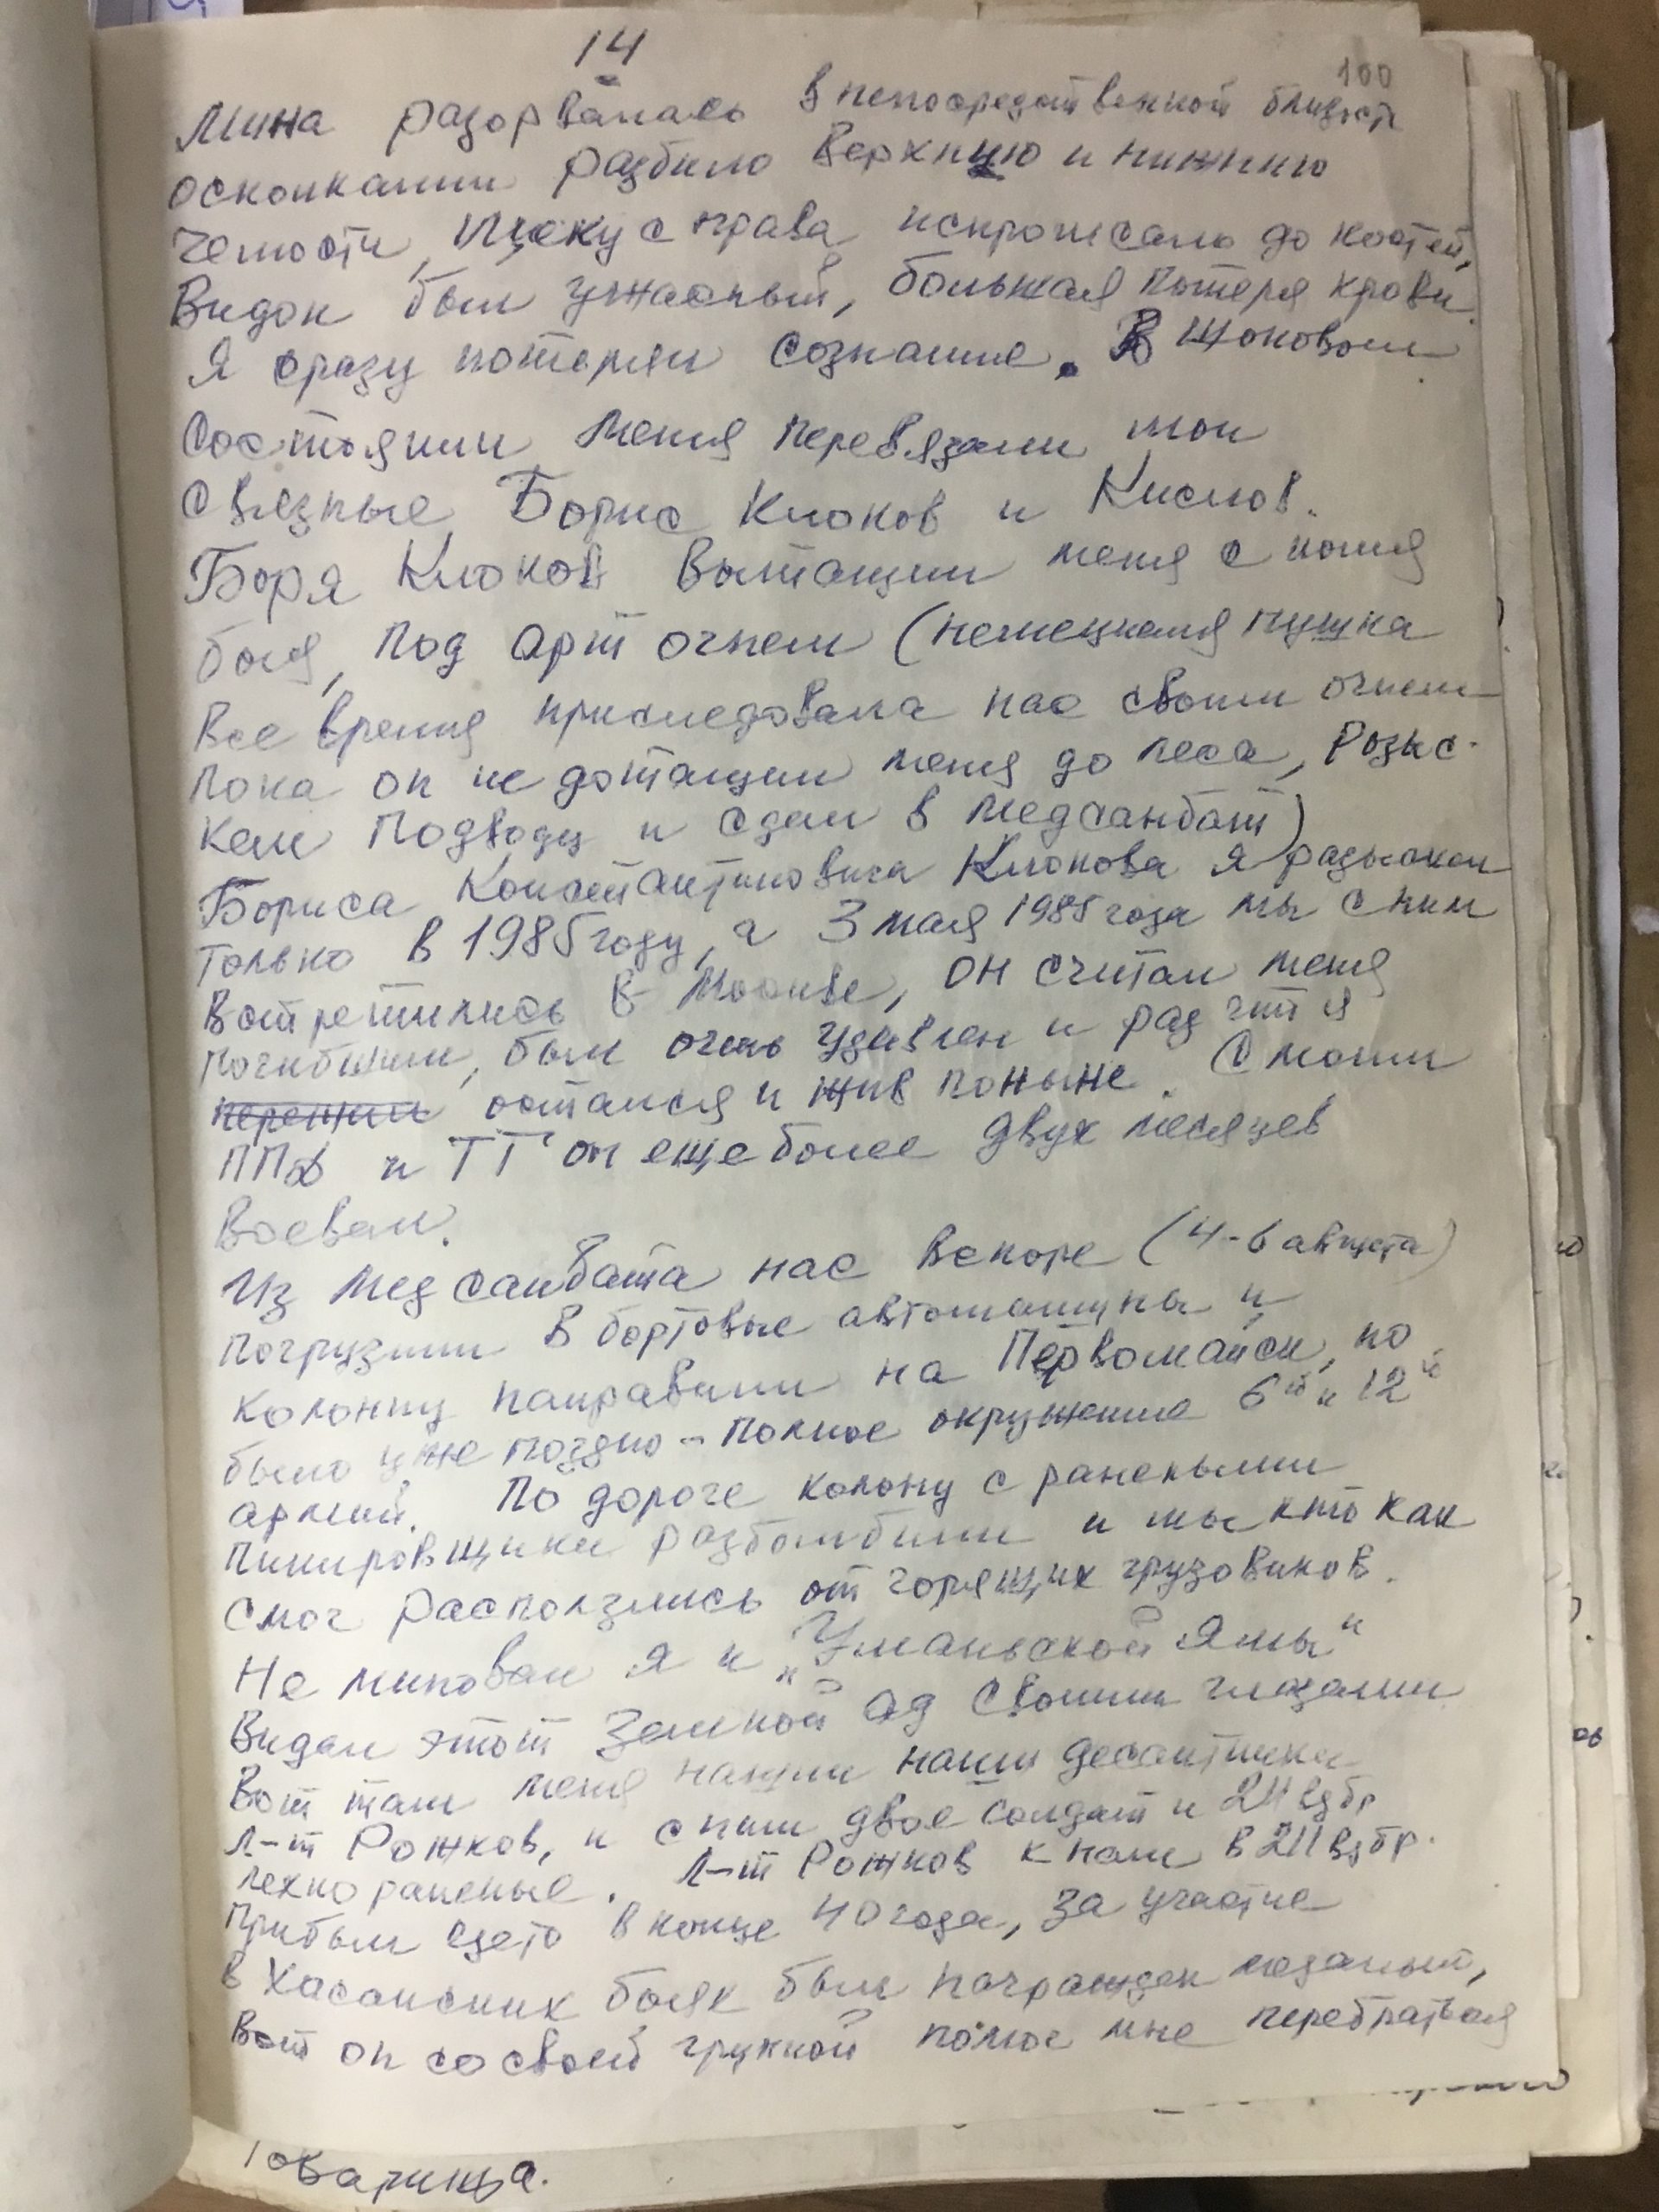 14
100
Мина разорвалась в непосредственной близости
осколками разбило верхнюю и нижнию
челюсти, щеку с права искромсало до костей,
Видок был ужасный, большая потеря крови.
Я сразу потерял сознание. В шоковом
состоянии меня перевязали мои
связные Борис Клоков и Кислов.
Боря Клоков вытащил меня с поля
боя, под арт огнем (немецкая пушка
все время приследовала нас своим огнем
пока он не дотащил меня до леса, Розыс-
кал подводу и сдал в медсанбат)
Бориса Константиновича Клокова я разыскал
только в 1985 году, а 3 мая 1985 года мы с ним
встретились в Москве, он считал меня
погибшим, был очень удивлен и рад что я
пережил остался и жив поныне. С моим
ППД и ТТ он еще более двух месяцев
воевал.
Из медсанбата нас вскоре (4-6 августа)
погрузили в бортовые автомашины и
колонну направили на Первомайск, но
было уже поздно - полное окружение 6й и 12й
армий. По дороге колону с ранеными
пикировщики разбомбили и мы кто как
смог расползлись от горящих грузовиков.
Не миновал я и „Уманьской Ямы"
Видал этот земной ад своими глазами
Вот там меня нашли наши десантники
л-т Рожков, и с ним двое солдат и 211 вдбр
лехко раненые. Л-т Рожков к нам в 211 вдбр.
прибыл гдето в конце 40 года, за участие
в Хасанских боях был награжден медалью,
вот он со своей групкой помог мне перебраться
товарища.